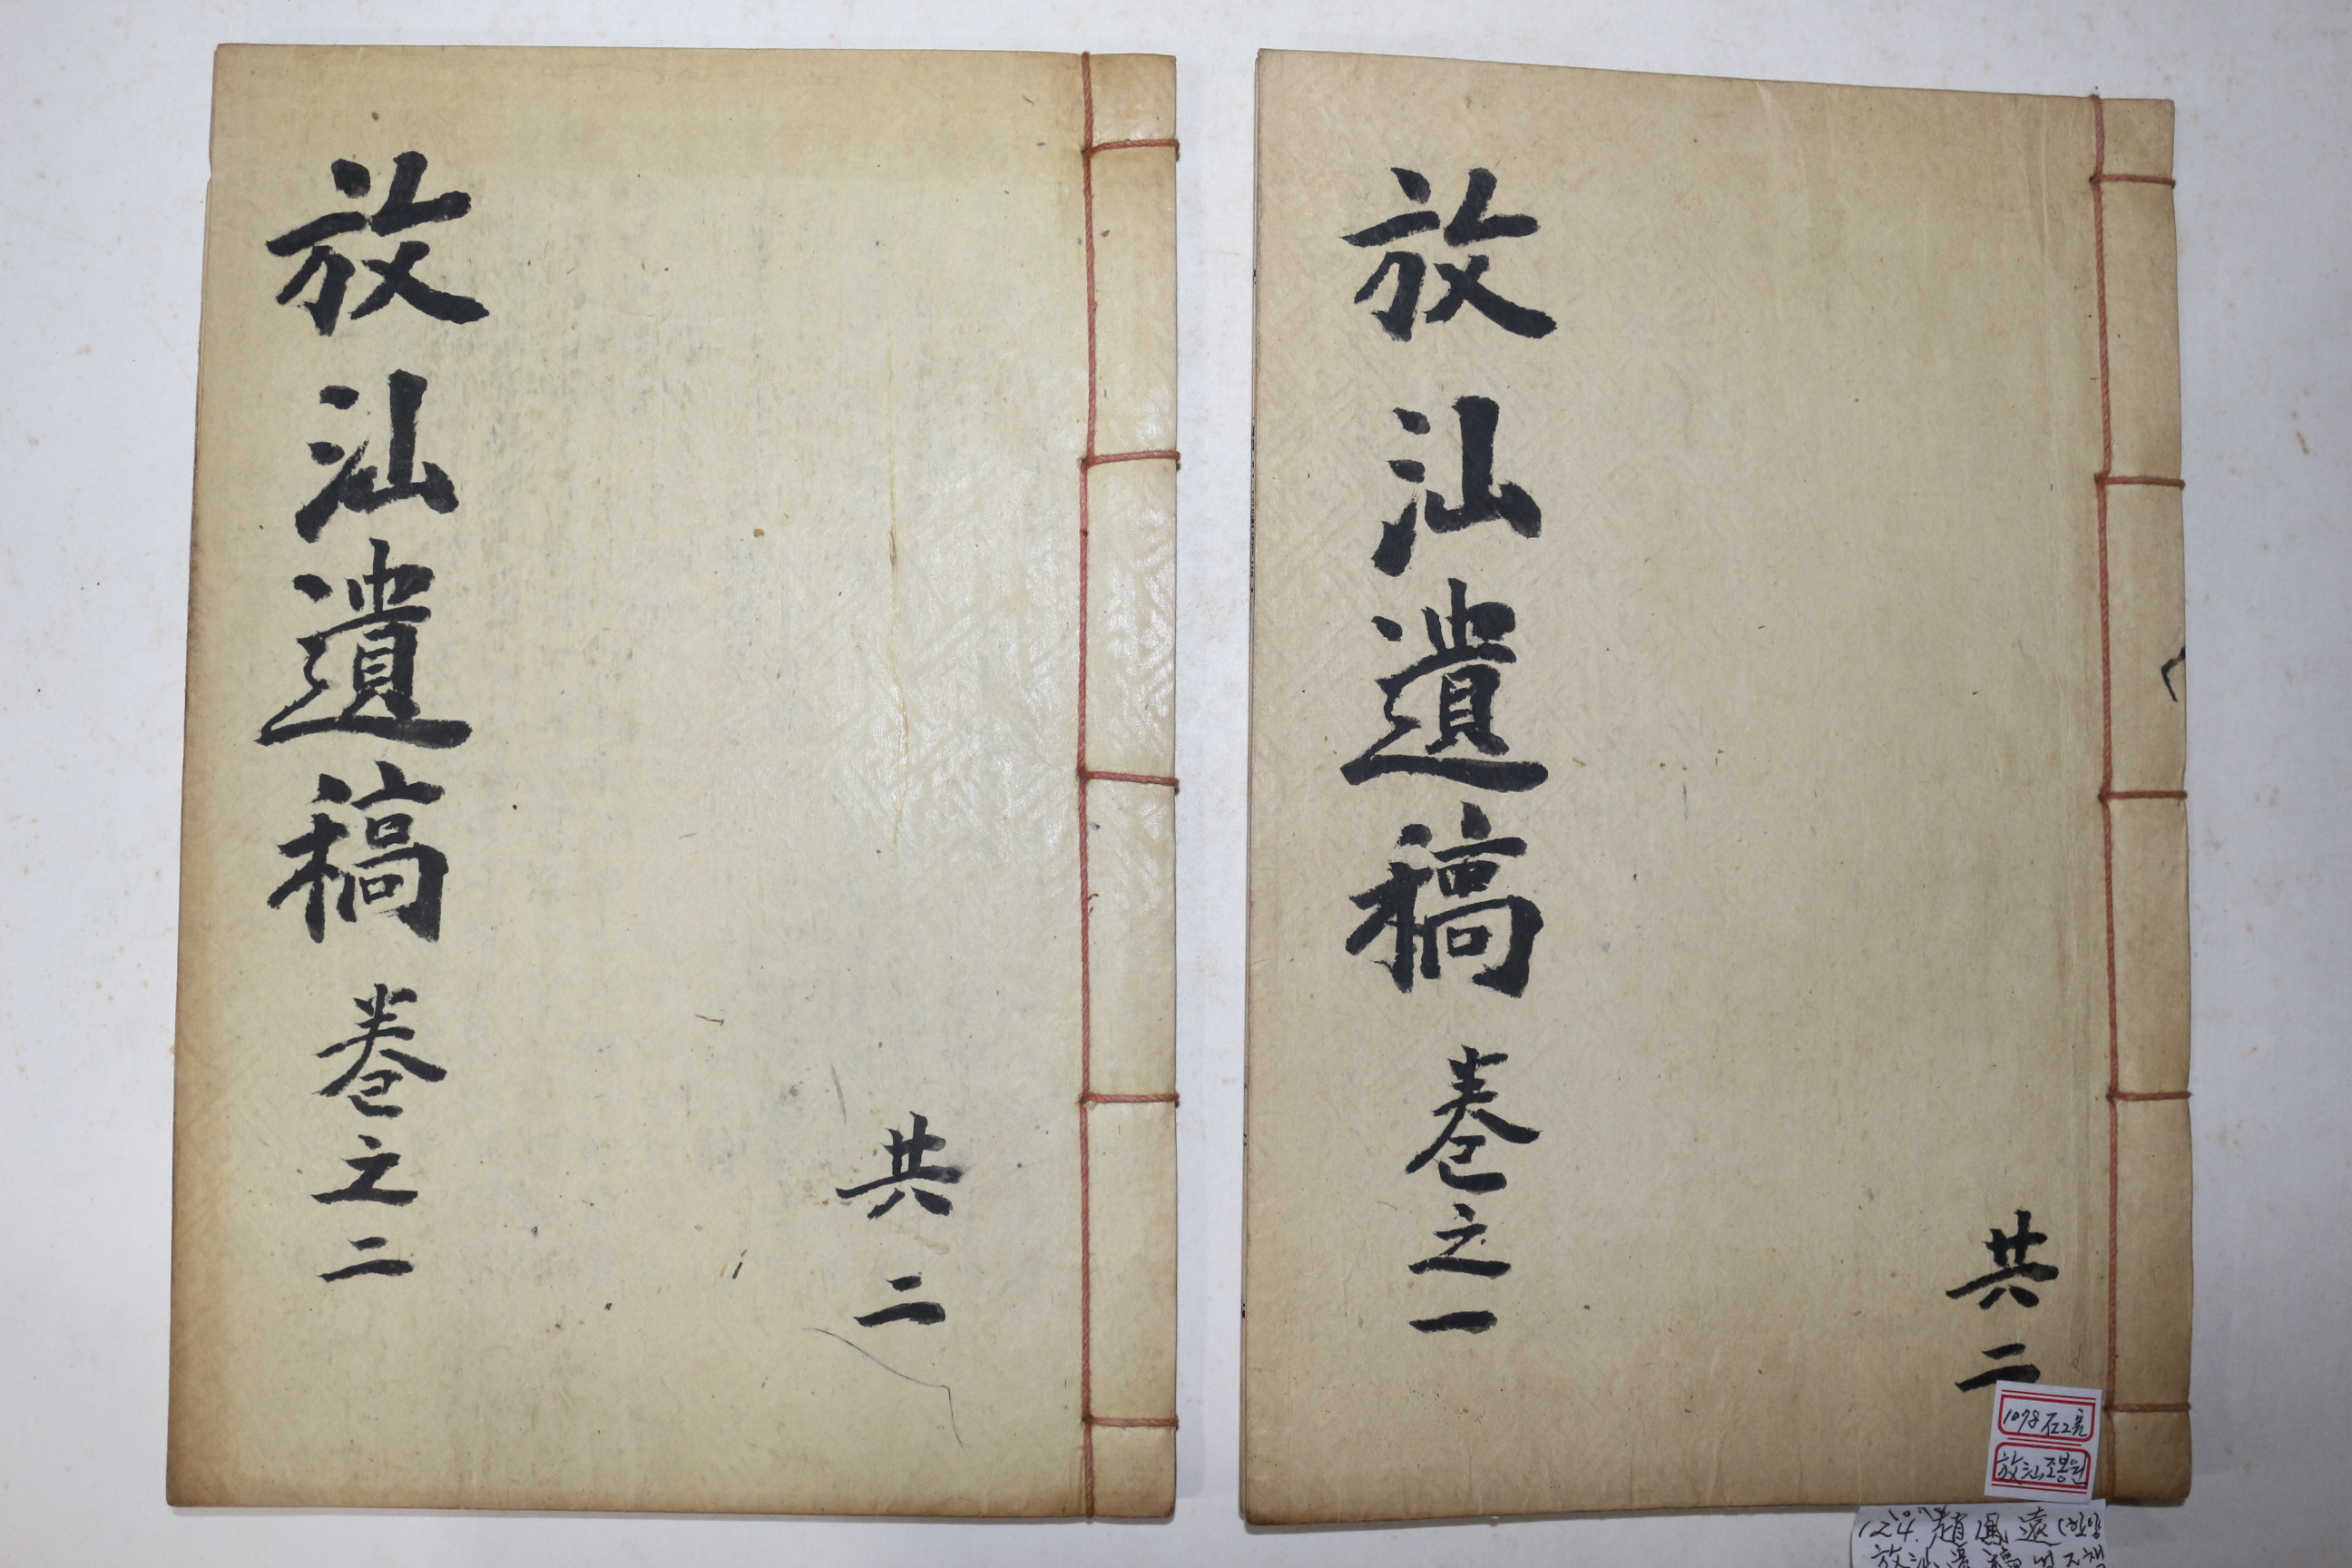 放汕遺稿 卷之一
共二
放汕遺稿 卷之二
共二
放汕조봉원
124. 趙鳳遠 (한양
放汕遺稿